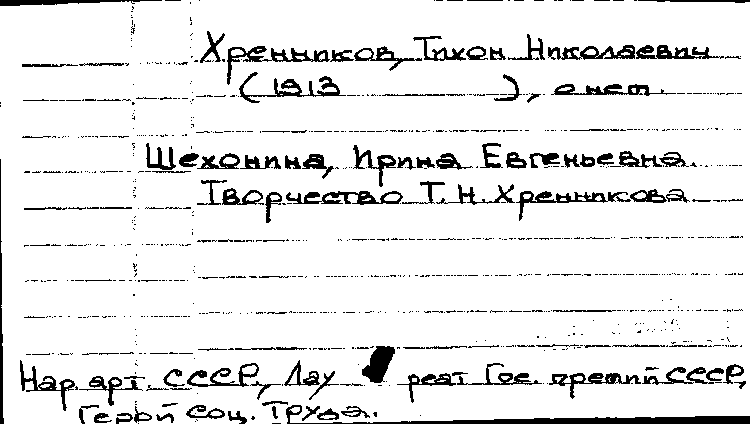 Хренников, Тихон Николаевич
(1913 ), о нем.
Шехонина, Ирина Евгеньевна.
Творчество Т. Н. Хренникова.
Нар. арт. СССР, Лау реат Гос. премий СССР,
Герой Соц. Труда.